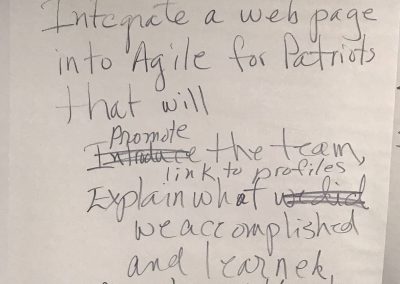 Integrate a web page
into Agile for Patriots
that will
Promote
Introduce the team,
link to profiles
Explain what we did
we accomplished
and learnek,